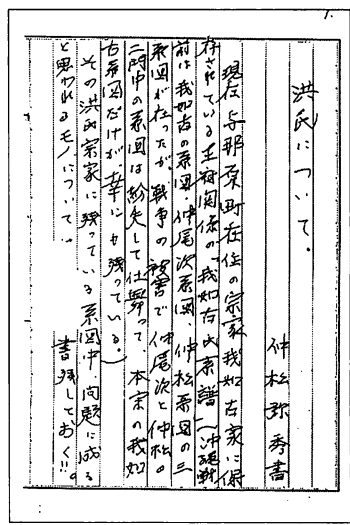 1.
洪氏について。
仲松弥秀書
現在与那原町在住の宗家我如古家に保
存されている王府関係の「我如古氏系譜」(沖縄戦
前は我如古の系図、仲尾次系図、仲松系図の三
系図が在ったが、戦争の被害で仲尾次と仲松。
二門中の系図は紛失して仕舞って、本宗の我如
古系図だけが、幸にも残っている。)
その洪氏宗家に残っている系図中、問題に成る
と思われるモノについて。 書残しておく!!。